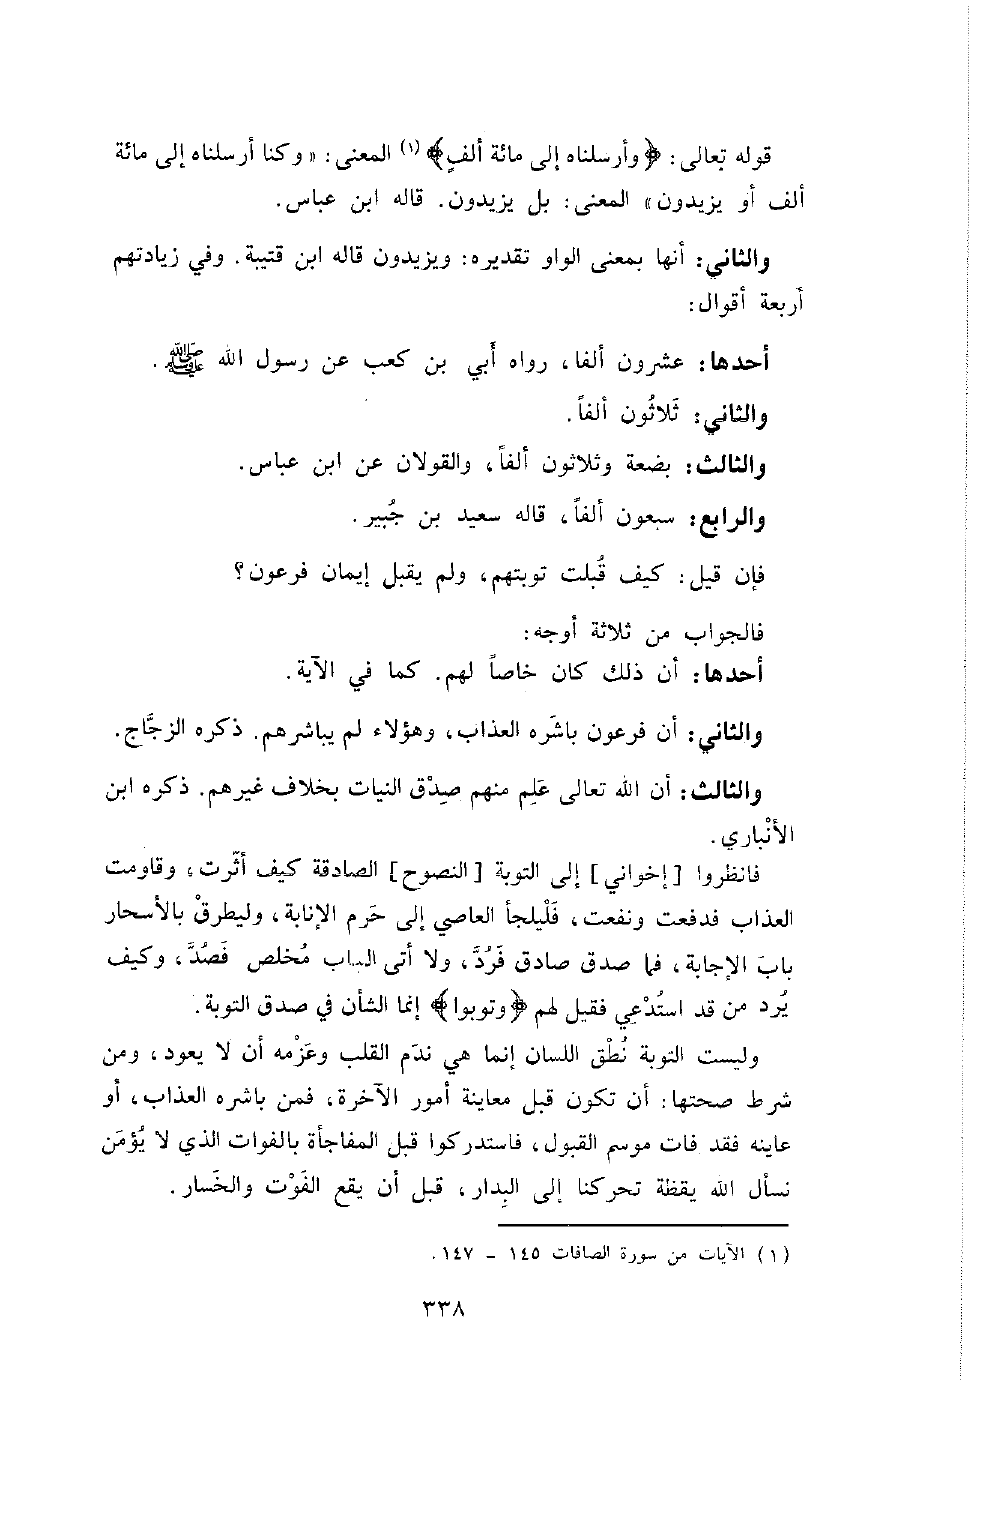 قوله تعالى: ﴿وأرسلناه إلى مائة ألفٍ﴾ (١) المعنى: «وكنا أرسلناه إلى مائة
ألف أو يزيدون» المعنى: بل يزيدون. قاله ابن عباس.
والثاني: أنها بمعنى الواو تقديره: ويزيدون قاله ابن قتيبة. وفي زيادتهم
أربعة أقوال:
أحدها: عشرون ألفا، رواه أبي بن كعب عن رسول الله ﷺ.
والثاني: ثَلاثُون ألفاً.
والثالث: بضعة وثلاثون ألفاً، والقولان عن ابن عباس.
والرابع: سبعون ألفاً، قاله سعيد بن جُبير.
فإن قيل: كيف قُبلت توبتهم، ولم يقبل إيمان فرعون؟
فالجواب من ثلاثة أوجه:
أحدها: أن ذلك كان خاصاً لهم. كما في الآية.
والثاني: أن فرعون باشَره العذاب، وهؤلاء لم يباشرهم. ذكره الزجَّاج.
والثالث: أن الله تعالى عَلِم منهم صِدْق النيات بخلاف غيرهم. ذكره ابن
الأنْباري.
فانظروا [إخواني] إلى التوبة [النصوح] الصادقة كيف أثّرت، وقاومت
العذاب فدفعت ونفعت، فَلْيلجأ العاصي إلى حَرم الإنابة، وليطرقْ بالأسحار
بابَ الإجابة، فما صدق صادق فَرُدَّ، ولا أتى الباب مُخلص فَصُدَّ، وكيف
يُرد من قد استُدْعي فقيل لهم ﴿وتوبوا﴾ إنما الشأن في صدق التوبة.
وليست التوبة نُطْق اللسان إنما هي ندَم القلب وعَزْمه أن لا يعود، ومن
شرط صحتها: أن تكون قبل معاينة أمور الآخرة، فمن باشره العذاب، أو
عاينه فقد فات موسم القبول، فاستدركوا قبل المفاجأة بالفوات الذي لا يُؤمَن
نسأل الله يقظة تحركنا إلى البِدار، قبل أن يقع الفَوْت والخَسار.
(١) الآيات من سورة الصافات ١٤٥ - ١٤٧.
٣٣٨